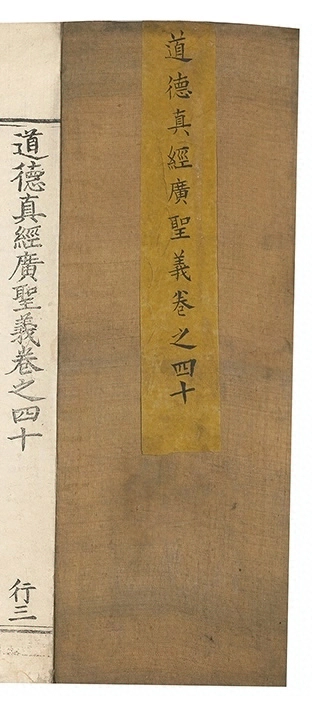 道德真經廣聖義卷之四十
道德真經廣聖義卷之四十
行三